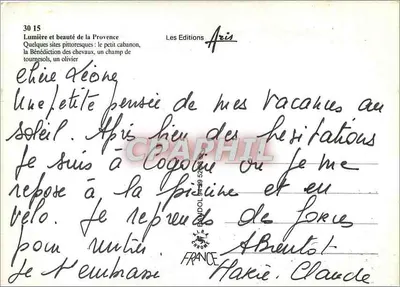 30 15
Lumière et beauté de la Provence
Quelques sites pittoresques : le petit cabanon,
la Bénédiction des chevaux, un champ de
tournesols, un olivier
Les Editions Aris
Chère Léone
Une petite pensée de mes vacances au
soleil. Après bien des hésitations
CPARPHIL
Je suis à Cogolin où je me
repose à la piscine et en
vélo. Je reprends des forces
pour rentrer. A Bientot
Je t'embrasse Marie-Claude
FRANCE